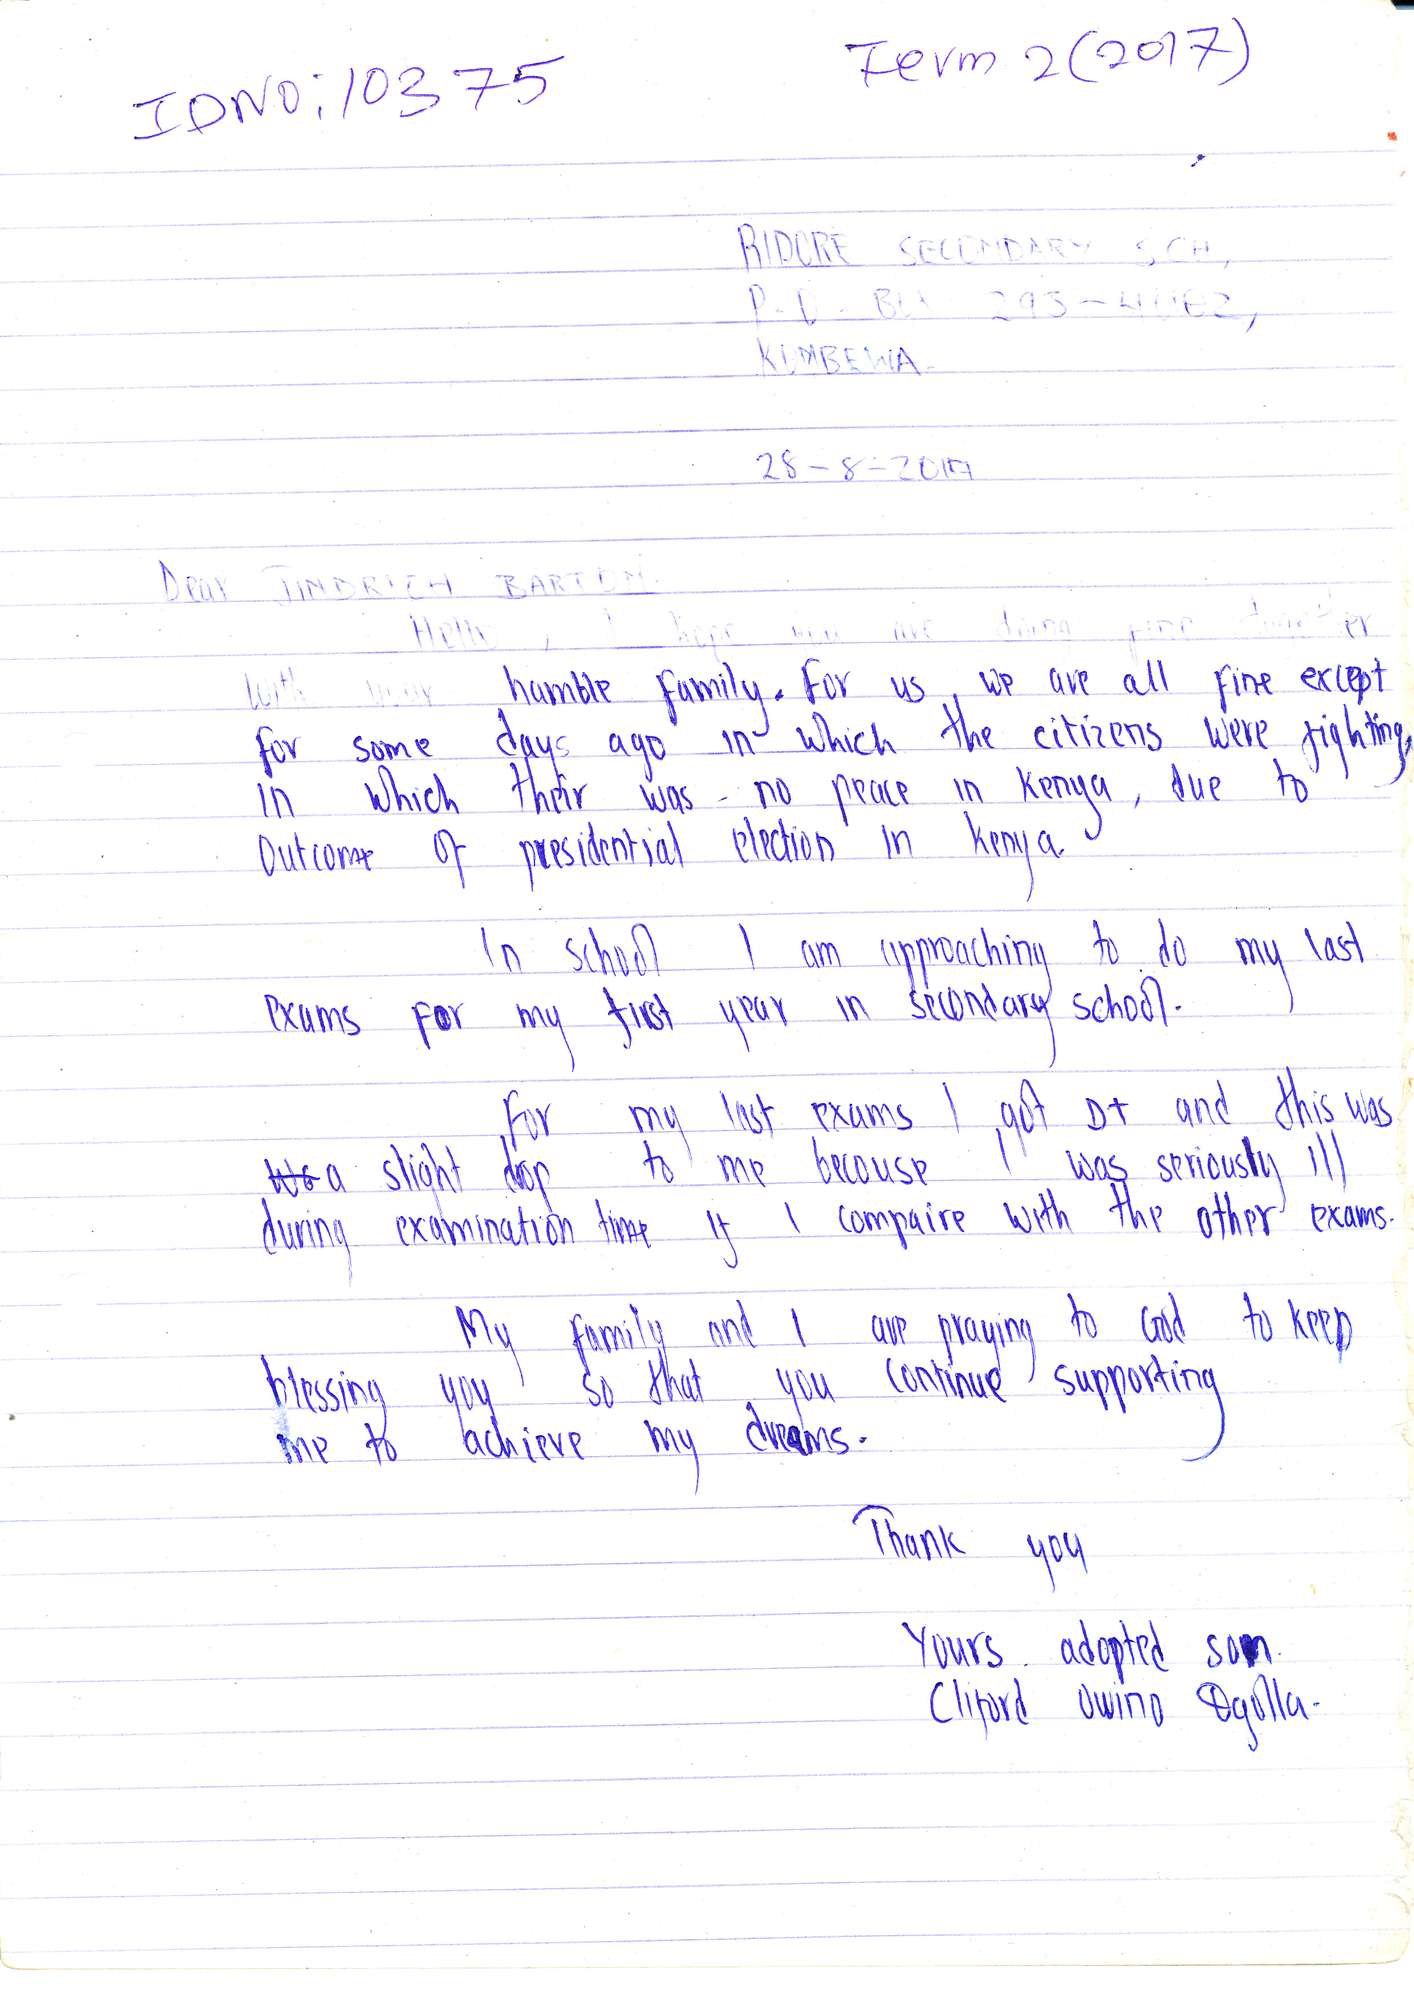 IDNO: 10375
Term 2 (2017)
RIDORE SECONDARY SCH,
P.O. BOX 293-
KOMBEWA.
28-8-2017
Dear JINDRICH BARTON.
Hello, I hope you are doing fine together
with your hamble family. For us, we are all fine except
for some days ago in which the citizens were fighting,
in which their was no peace in Kenya, due to
outcome of presidential election in Kenya.
In school I am approaching to do my last
exams for my first year in secondary school.
For my last exams I got D+ and this was
a slight drop to me becouse I was seriously ill
during examination time if I compaire with the other exams.
My family and I are praying to God to keep
blessing you so that you continue supporting
me to achieve my dreams.
Thank you
Yours adopted son.
Cliford Owino Ogolla.